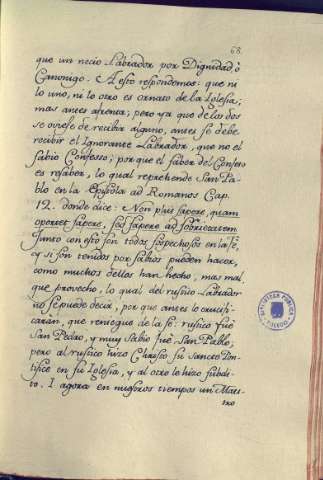 68.
que un necio Labrador por Dignidad ò
Canonigo. A esto respondemos: que ni
lo uno, ni lo otro es ornato de la Iglesia;
mas antes afrenta; pero ya que de los dos
se oviese de recibir alguno, antes se debe
recibir el Ignorante Labrador, que no el
sabio Confesso; porque el saber del Confeso
es resaber, lo qual reprehende San Pa-
blo en la Epistola ad Romanos Cap.
12. donde dice: Non plus sapere, quam
oportet sapere, sed sapere ad sobrietatem
Junto con esto son todos sospechosos en la fè,
y si son tenidos por sabios pueden hacer,
como muchos dellos han hecho, mas mal,
que provecho, lo qual del rustico Labrador
no se puede decir, por que antes lo crucifi-
caràn, que reniegue de la fè: rustico fuè
San Pedro, y muy sabio fuè San Pablo;
pero al rustico hizo Christo su sancto Pon-
tifice en su Iglesia, y al otro le hizo subdi-
to. I agora en nuestros tiempos un Maes-
tro
BIBLIOTECA PUBLICA
TOLEDO